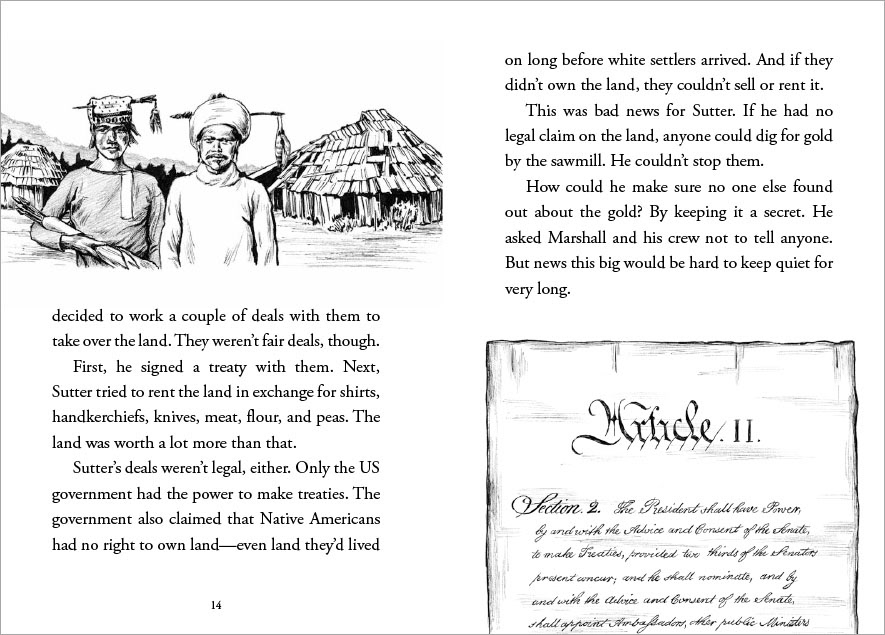 decided to work a couple of deals with them to
take over the land. They weren’t fair deals, though.
First, he signed a treaty with them. Next,
Sutter tried to rent the land in exchange for shirts,
handkerchiefs, knives, meat, flour, and peas. The
land was worth a lot more than that.
Sutter’s deals weren’t legal, either. Only the US
government had the power to make treaties. The
government also claimed that Native Americans
had no right to own land—even land they’d lived
14
on long before white settlers arrived. And if they
didn’t own the land, they couldn’t sell or rent it.
This was bad news for Sutter. If he had no
legal claim on the land, anyone could dig for gold
by the sawmill. He couldn’t stop them.
How could he make sure no one else found
out about the gold? By keeping it a secret. He
asked Marshall and his crew not to tell anyone.
But news this big would be hard to keep quiet for
very long.
Article. II.
Section. 2. The President shall have Power,
by and with the Advice and Consent of the Senate,
to make Treaties, provided two thirds of the Senators
present concur; and he shall nominate, and by
and with the Advice and Consent of the Senate,
shall appoint Ambassadors, other public Ministers